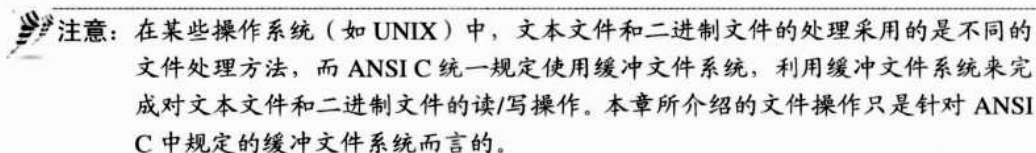 注意：在某些操作系统（如 UNIX）中，文本文件和二进制文件的处理采用的是不同的
文件处理方法，而 ANSI C 统一规定使用缓冲文件系统，利用缓冲文件系统来完
成对文本文件和二进制文件的读/写操作。本章所介绍的文件操作只是针对 ANSI
C 中规定的缓冲文件系统而言的。